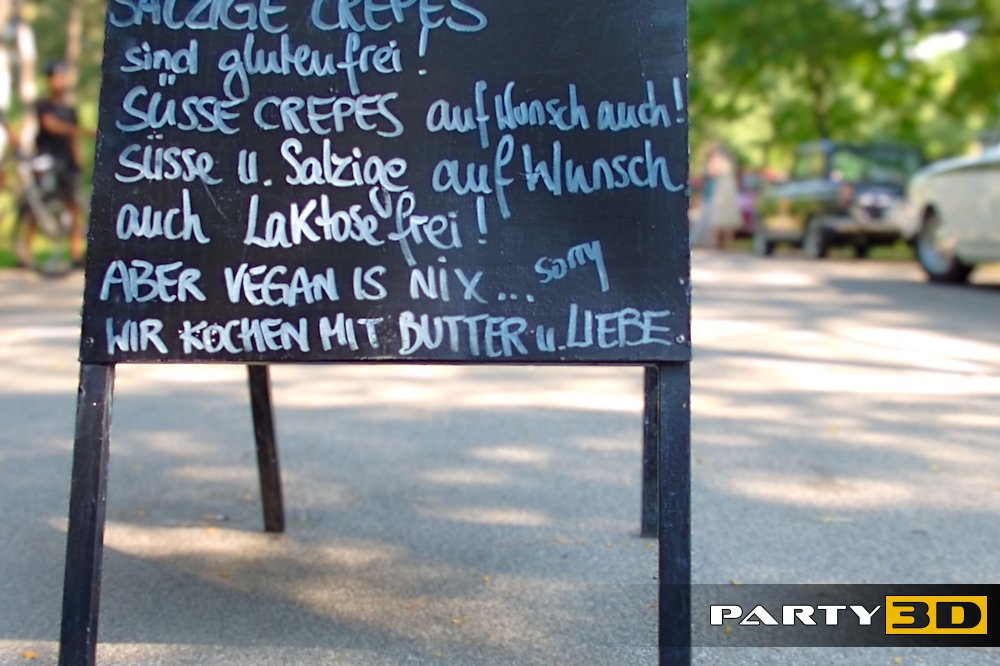 SALZIGE CREPES
sind glutenfrei!
SÜSSE CREPES auf Wunsch auch!
süsse u. Salzige auf Wunsch
auch Laktosefrei!
ABER VEGAN IS NIX... sorry
WIR KOCHEN MIT BUTTER u. LIEBE
PARTY 3D